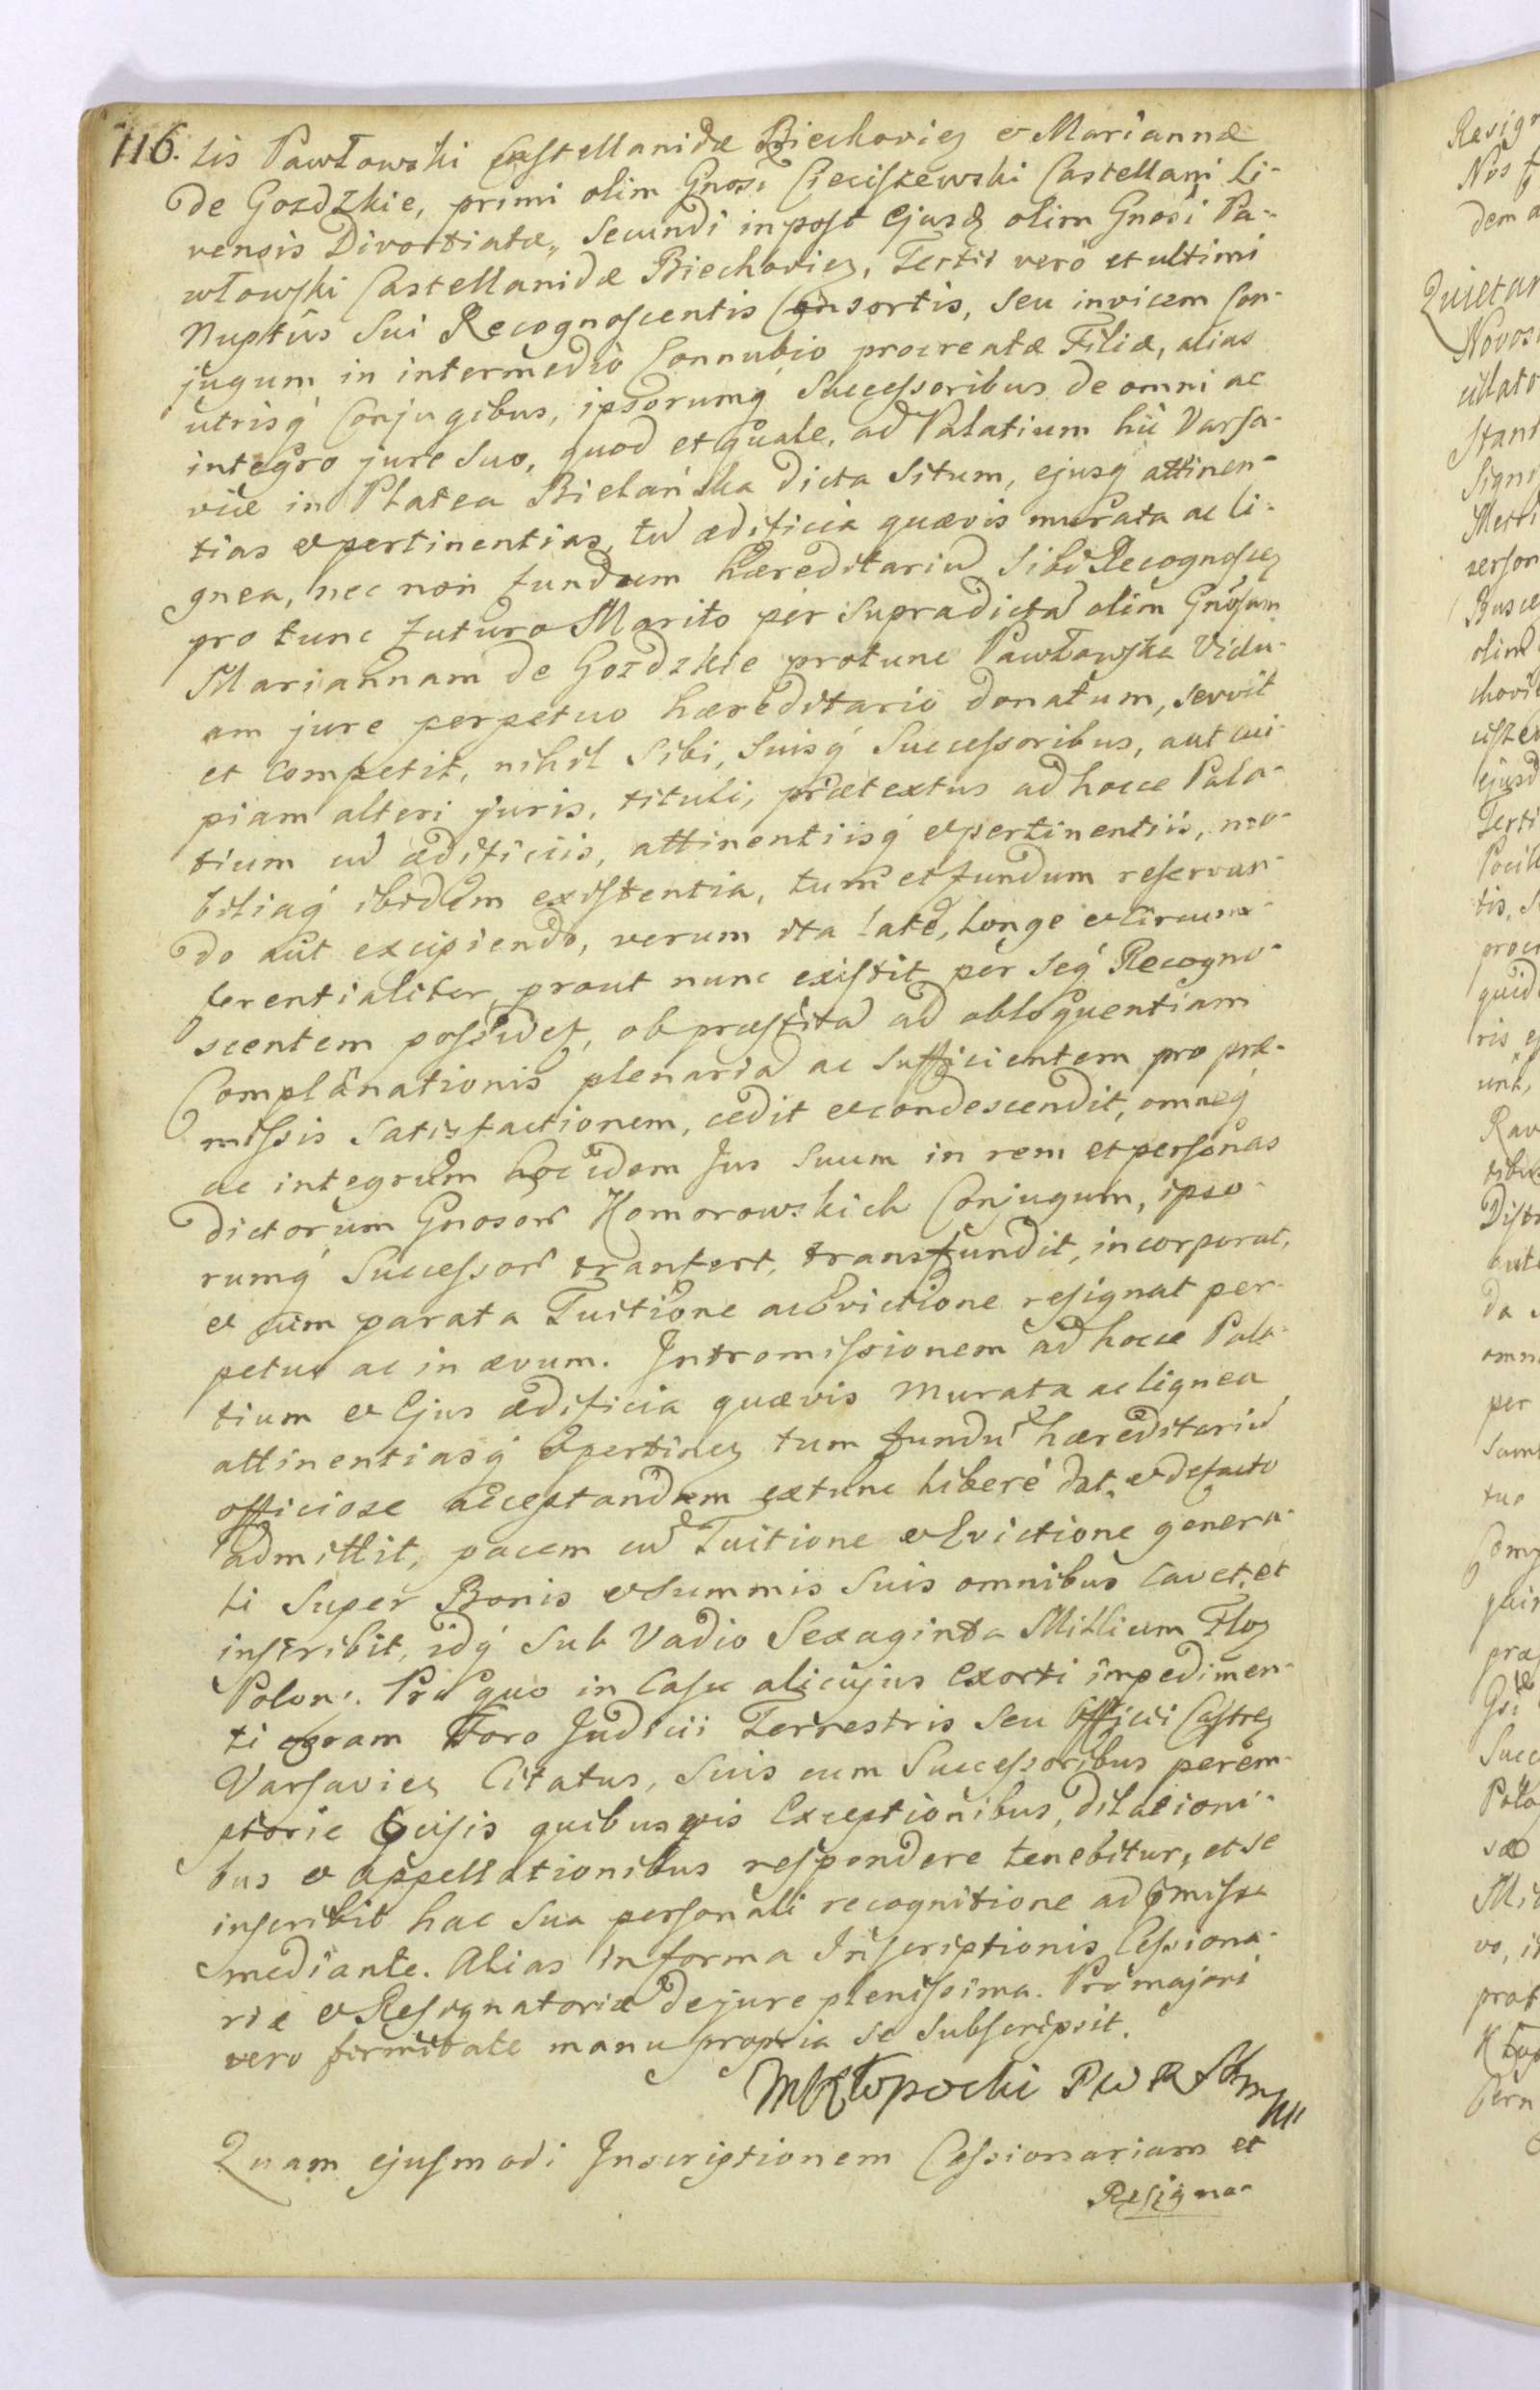 116. lis Pawłowski Castellanidæ Biechovien et Mariannæ
de Gozdzkie, primi olim Gnosi Cieciszewski Castellani Li-
vensis Divortiatæ, Secundi inpost Ejusd olim Gnosi Pa-
włowski Castellanidæ Biechovien, Tertii vero et ultimi
Nuptiis Sui Recognoscentis Consortis, seu invicem Con-
jugum in intermedio Connubio procreatæ Filiæ, alias
utrisq Conjugibus, ipsorumq Successoribus de omni ac
integro jure Suo, quod et quale, ad Palatium hic Varsa-
viæ in Platea Bielańska dicta Situm, ejusq attinen-
tias et pertinentias, tu ædificia quævis murata ac li-
gnea, nec non fundum hæreditariu Sibi Recognoscen
pro tunc futuro Marito per Supradicta olim Gnosam
Mariannam de Gozdzkie protunc Pawłowska Vidu-
am jure perpetuo hæreditario donatum, servit
et competit, nihil Sibi, Suisq Successoribus, aut cui-
piam alteri juris, tituli, prætextus ad hocce Pala-
tium cu ædificiis, attinentiisq et pertinentiis, mo-
biliaq ibidem existentia, tum et fundum reservan-
do aut excipiendo, verum ita late, longe et circum-
ferentialiter, prout nunc existit per Seq Recogno-
scentem possidet, ob præstita ad obloquentiam
Complanationis plenaria ac Sufficientem pro præ-
missis Satisfactionem, cedit et condescendit, omneq
ac integrum hocidem Jus Suum in rem et personas
dictorum Gnosor Komorowskich Conjugum, ipso-
rumq Successor transfert, transfundit, incorporat,
et cum parata Tuitione ac Evictione resignat per-
petuo ac in ævum. Intromissionem ad hocce Pala-
tium et Ejus ædificia quævis murata ac lignea
attinentiasq et pertinen tum fundu hæreditariu
officiose acceptandam extunc liberè dat, et defacto
admittit, pacem cu Tuitione et Evictione genera-
li Super Bonis et Summis Suis omnibus cavet, et
inscribit, idq Sub Vadio Sexaginta Millium Flor
Polon:. Pro quo in Casu alicujus Exorti impedimen-
ti coram Foro Judicii Terrestris seu Officii Castren
Varsavien Citatus, Suis cum Successoribus perem-
ptorie quibusvis Exceptionibus, dilationi-
bus et appellationibus respondere tenebitur, et se
inscribit hac Sua personali recognitione ad pmissa
mediante. Alias in forma Inscriptionis Cessiona-
riæ et Resignatoriæ de jure plenissima. Pro majori
vero firmitate manu propria se subscripsit.
Quam ejusmodi Inscriptionem Cessionariam et
Resigna-